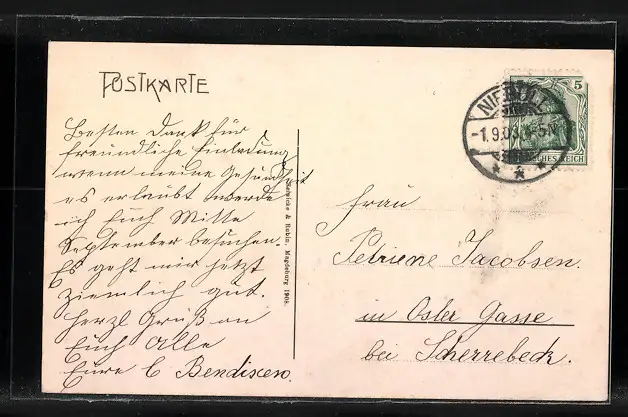 POSTKARTE
Besten Dank für
freundliche Einladung
wenn meine Gesundheit
es erlaubt werde
ich Euch Mitte
September besuchen.
Es geht mir jetzt
ziemlich gut.
Herzl Gruß an
Euch Alle
Eure C Bendixen.
& Rubin, Magdeburg 1908.
NIEBÜLL
-1.9.08. 4-5N
5
DEUTSCHES REICH
Frau
Petriene Jacobsen.
in Oster Gasse
bei Scherrebeck.